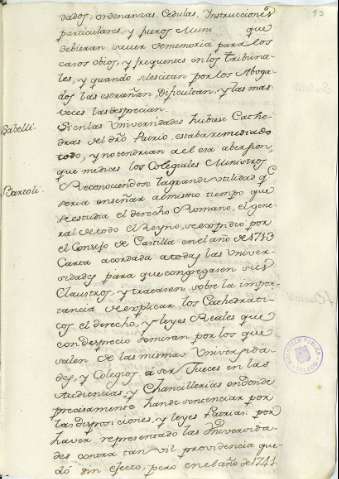 vados, ordenanzas, Cedulas, Instrucciones
particulares, y fueros Mun que
debieran tener de memoria para los
casos obios, y frequentes en los Tribuna-
les, y quando se citan por los Aboga-
dos las extrañan, dificultan, y las mas
veces las desprecian.
Si en las Universidades hubiese Cathe-
dras del dro Patrio, estaba remediado
todo, y no tendrian a el esa aversion,
que muchos los Colegiales Ministros
Reconociendo la grande utilidad q.e
seria enseñar al mismo tiempo que
se estudia el derecho Romano, el gene-
ral de todo el Reyno, se expidio por
el Consejo de Castilla en el año de 1713
Carta acordada a todas las Univer-
sidades para que congregasen sus
Claustros, y tratasen sobre la impor-
tancia de explicar los Cathedrati-
cos el derecho, y leyes Reales que
con desprecio se miran por los que
salen de las mismas Universida-
des, y Colegios a ser Jueces en las
Audiencias, y Chancillerias en donde
precisamente han de sentenciar por
las disposiciones, y leyes Patrias: por
haver representado las Universida-
des contra tan util providencia que-
dó sin efecto, pero en el año de 1741
Bartoli.